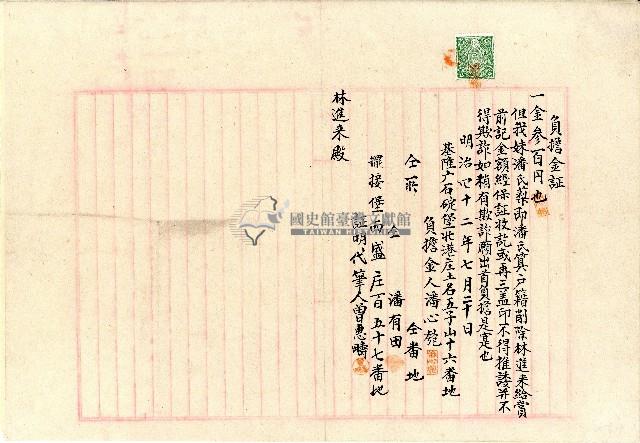 負擔金証
一金參百円也
但我妹潘氏梨即潘氏箕戶籍削除林進来給賞
前記金額經保証收訖或再三盖印不得推諉并不
得欺詐如稍有欺詐願出首負擔是寔也
明治四十二年七月二十日
基隆廳石碇堡北港庄土名五子山十六番地
負擔金人潘心
仝所 仝番地
仝 潘有田
擺接堡 盛庄百五十七番地
証明代筆人曾惠疇
林進来殿
國史館臺灣文獻館
TAIWAN HISTORICA